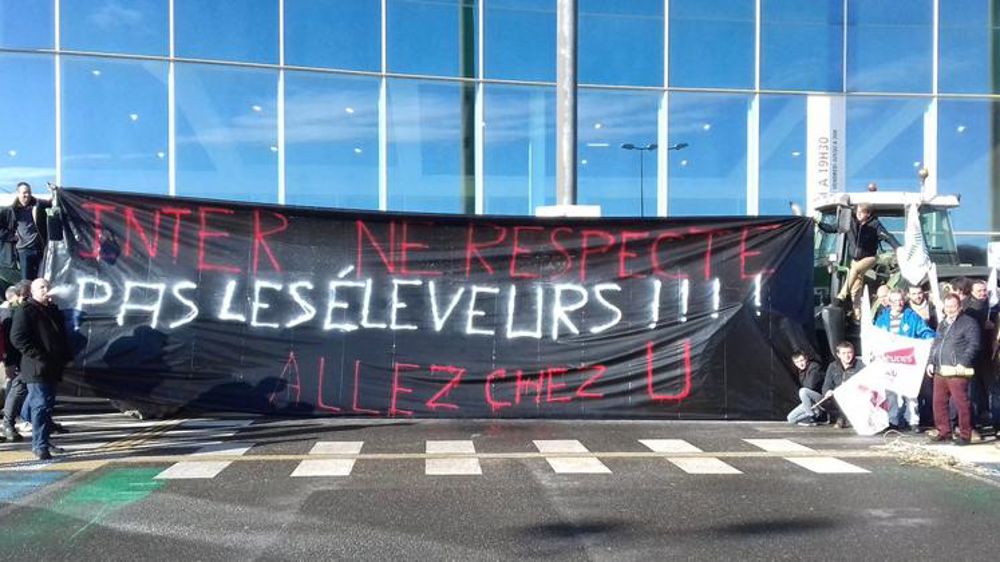 INTER NE RESPECTE
PAS LES ÉLEVEURS !!!!
ALLEZ CHEZ U
À 19H30